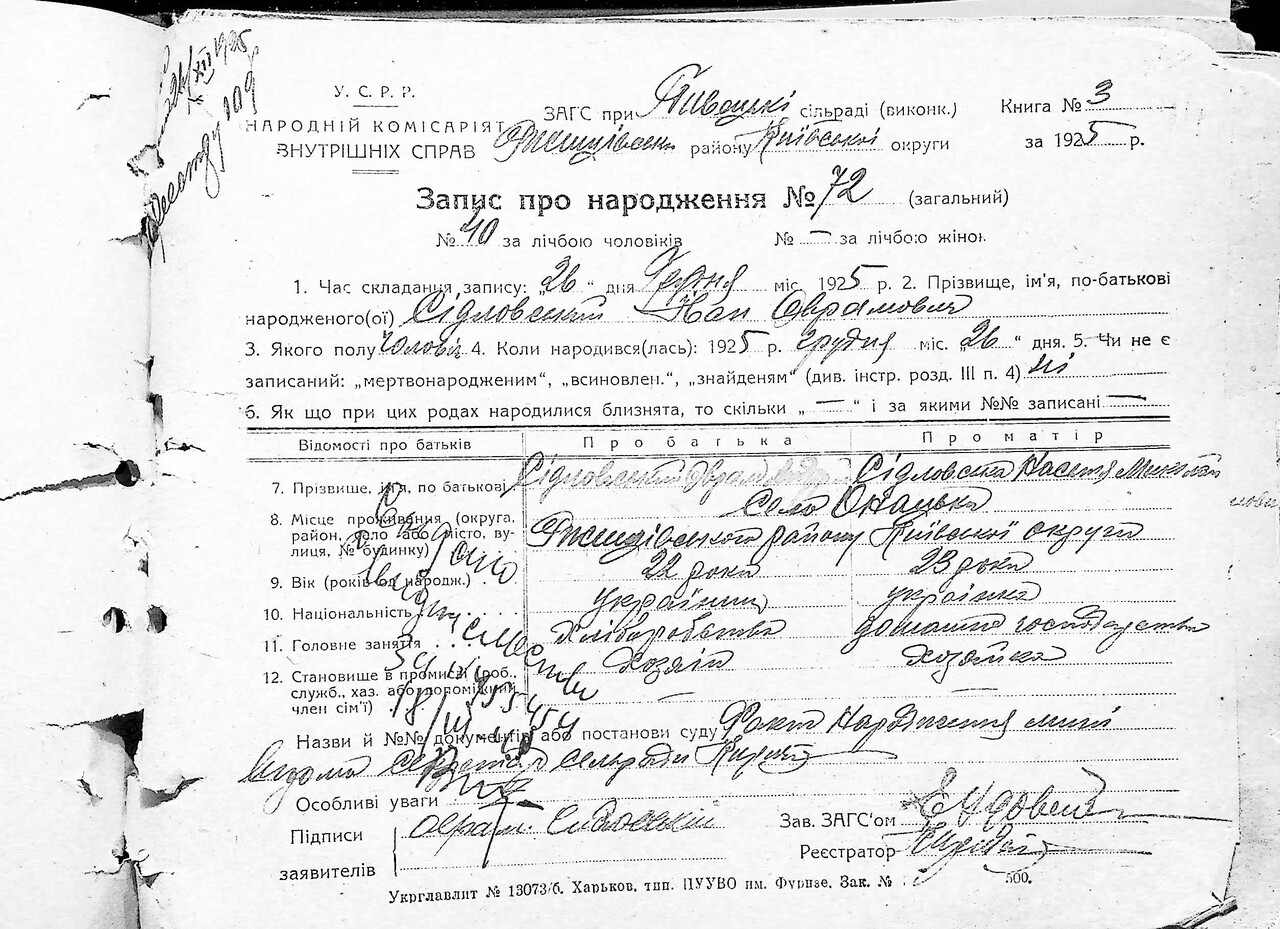 У. С. Р. Р.
НАРОДНІЙ КОМІСАРІЯТ
ВНУТРІШНІХ СПРАВ
ЗАГС при сільраді (виконк.)
району Київської округи
Книга № 3
за 1925 р.
Запис про народження № 72 (загальний)
№ 40 за лічбою чоловіків № — за лічбою жінок
1. Час складання запису: „26“ дня Грудня міс. 1925 р. 2. Прізвище, ім'я, по-батькові
народженого(ої) Сідловський Іван Оврамович
3. Якого полу чолов. 4. Коли народився(лась): 1925 р. грудня міс. „26“ дня. 5. Чи не є
записаний: „мертвонародженим“, „всиновлен.“, „знайденям“ (див. інстр. розд. III п. 4) ні
6. Як що при цих родах народилися близнята, то скільки „—“ і за якими №№ записані —
Відомості про батьків Про батька Про матір
7. Прізвище, ім'я, по батькові Сідловський Оврам Сідловська Настя
8. Місце проживання (округа, район, село або місто, вулиця, № будинку) Село
району Київської округи
9. Вік (років од народж.) 22 роки 23 роки
10. Національність українець українка
11. Головне заняття хліборобство домашнє господарство
12. Становище в промислі (роб., служб., хаз. або допоміжний член сім'ї) хозяїн хозяйка
Назви й №№ документів або постанови суду Факт народження мині
відома Сельради
Особливі уваги
Підписи
заявителів
Зав. ЗАГС'ом
Реєстратор
Укрглавлит № 13073/б. Харьков, тип. ПУУВО им. Фрунзе. Зак. № 500.